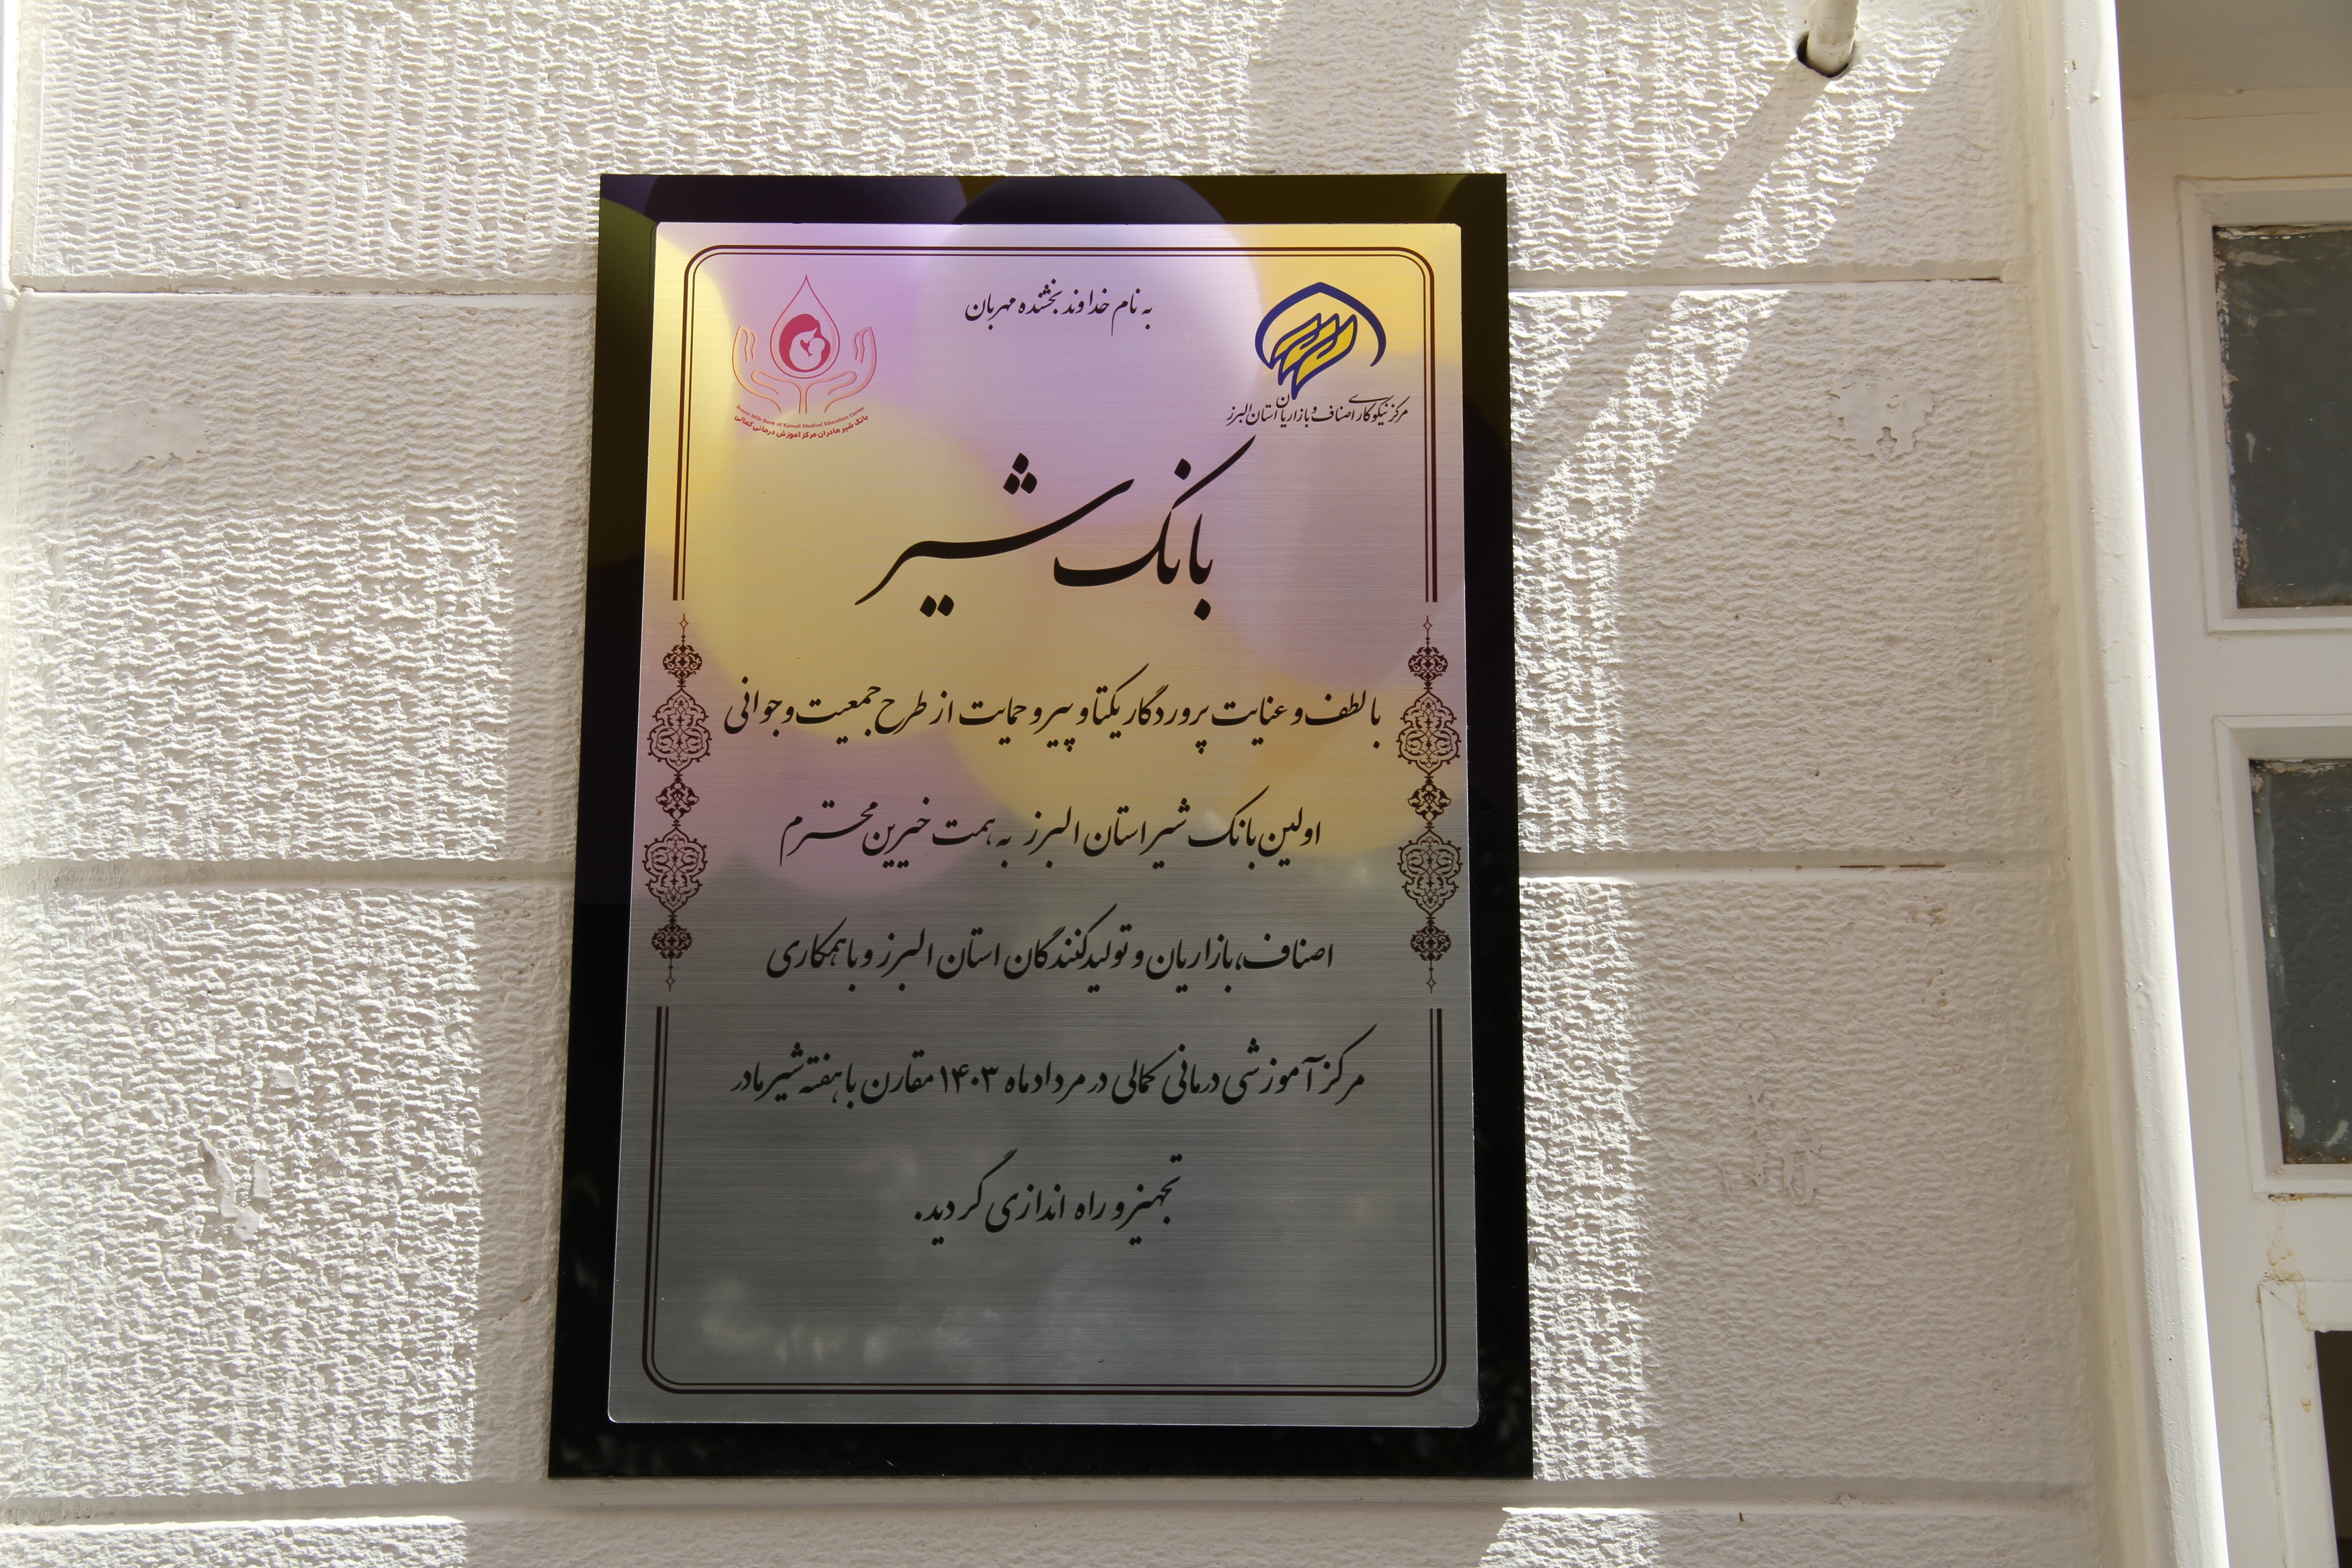 به نام خداوند بخشنده مهربان
مرکز نیکوکاری اصناف و بازاریان استان البرز
Breast Milk Bank of Kamali Medical Education Center
بانک شیر مادران مرکز آموزش درمانی کمالی
بانک شیر
با لطف و عنایت پروردگار یکتا و پیرو حمایت از طرح جمعیت و جوانی
اولین بانک شیر استان البرز به همت خیرین محترم
اصناف، بازاریان و تولیدکنندگان استان البرز و با همکاری
مرکز آموزشی درمانی کمالی در مردادماه ۱۴۰۳ مقارن با هفته شیر مادر
تجهیز و راه اندازی گردید.